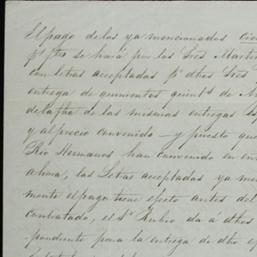 El pago de los ya mencionados
se hará por los Sres Marti
con letras acceptadas pr dhos Sres
entrega de quinientos quints de M
de la fha de las mismas entregas
y al precio convenido — y puesto que
Rio Hermanos han convenido en
ahora, las Letras acceptadas ya me
mente el pago tiene efecto antes del
contratado, el Sr Rubio da á dhos
pondiente para la entrega de dho